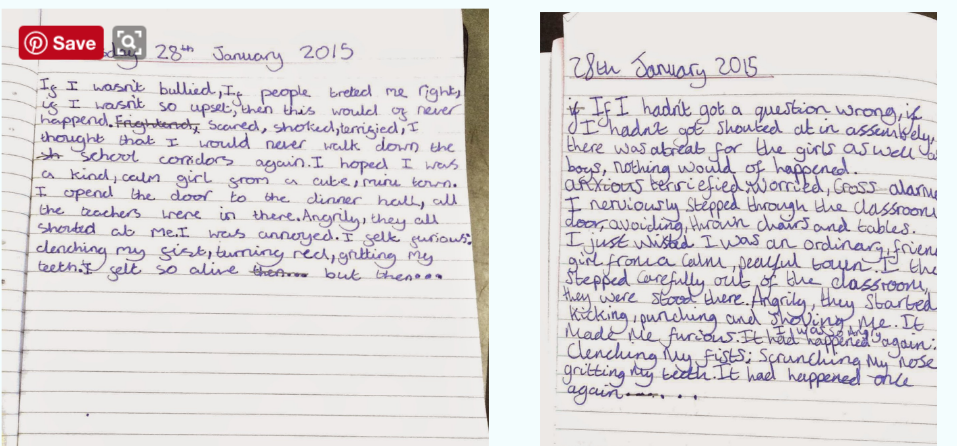 Save
day 28th January 2015
If I wasn't bullied, If people treted me right,
if I wasn't so upset, then this would of never
happend. Frightend, scared, shoked, terrified, I
thought that I would never walk down the
sh school corridors again. I hoped I was
a kind, calm girl from a cute, mini town.
I opend the door to the dinner hall, all
the teachers were in there. Angrily, they all
shouted at me. I was annoyed. I felt furious:
clenching my fist, turning red, gritting my
teeth. I felt so alive then.... but then...
28th January 2015
if If I hadn't got a question wrong, if
I hadn't got shouted at in assembely,
there was a treat for the girls as well as
boys, nothing would of happened.
anxious terriefied, worried, Cross alarm
I nerviously stepped through the classroom
door, avoiding thrown chairs and tables.
I just wished I was an ordinary, frien
girl from a calm, peaful town. I the
stepped carefully out of the classroom,
they were stood there. Angrily, they started
kicking, punching and shoving me. It
made me furious. It had happened again:
I was so angry
Clenching my fists; scrunching my nose
gritting my teeth. It had happened once
again......